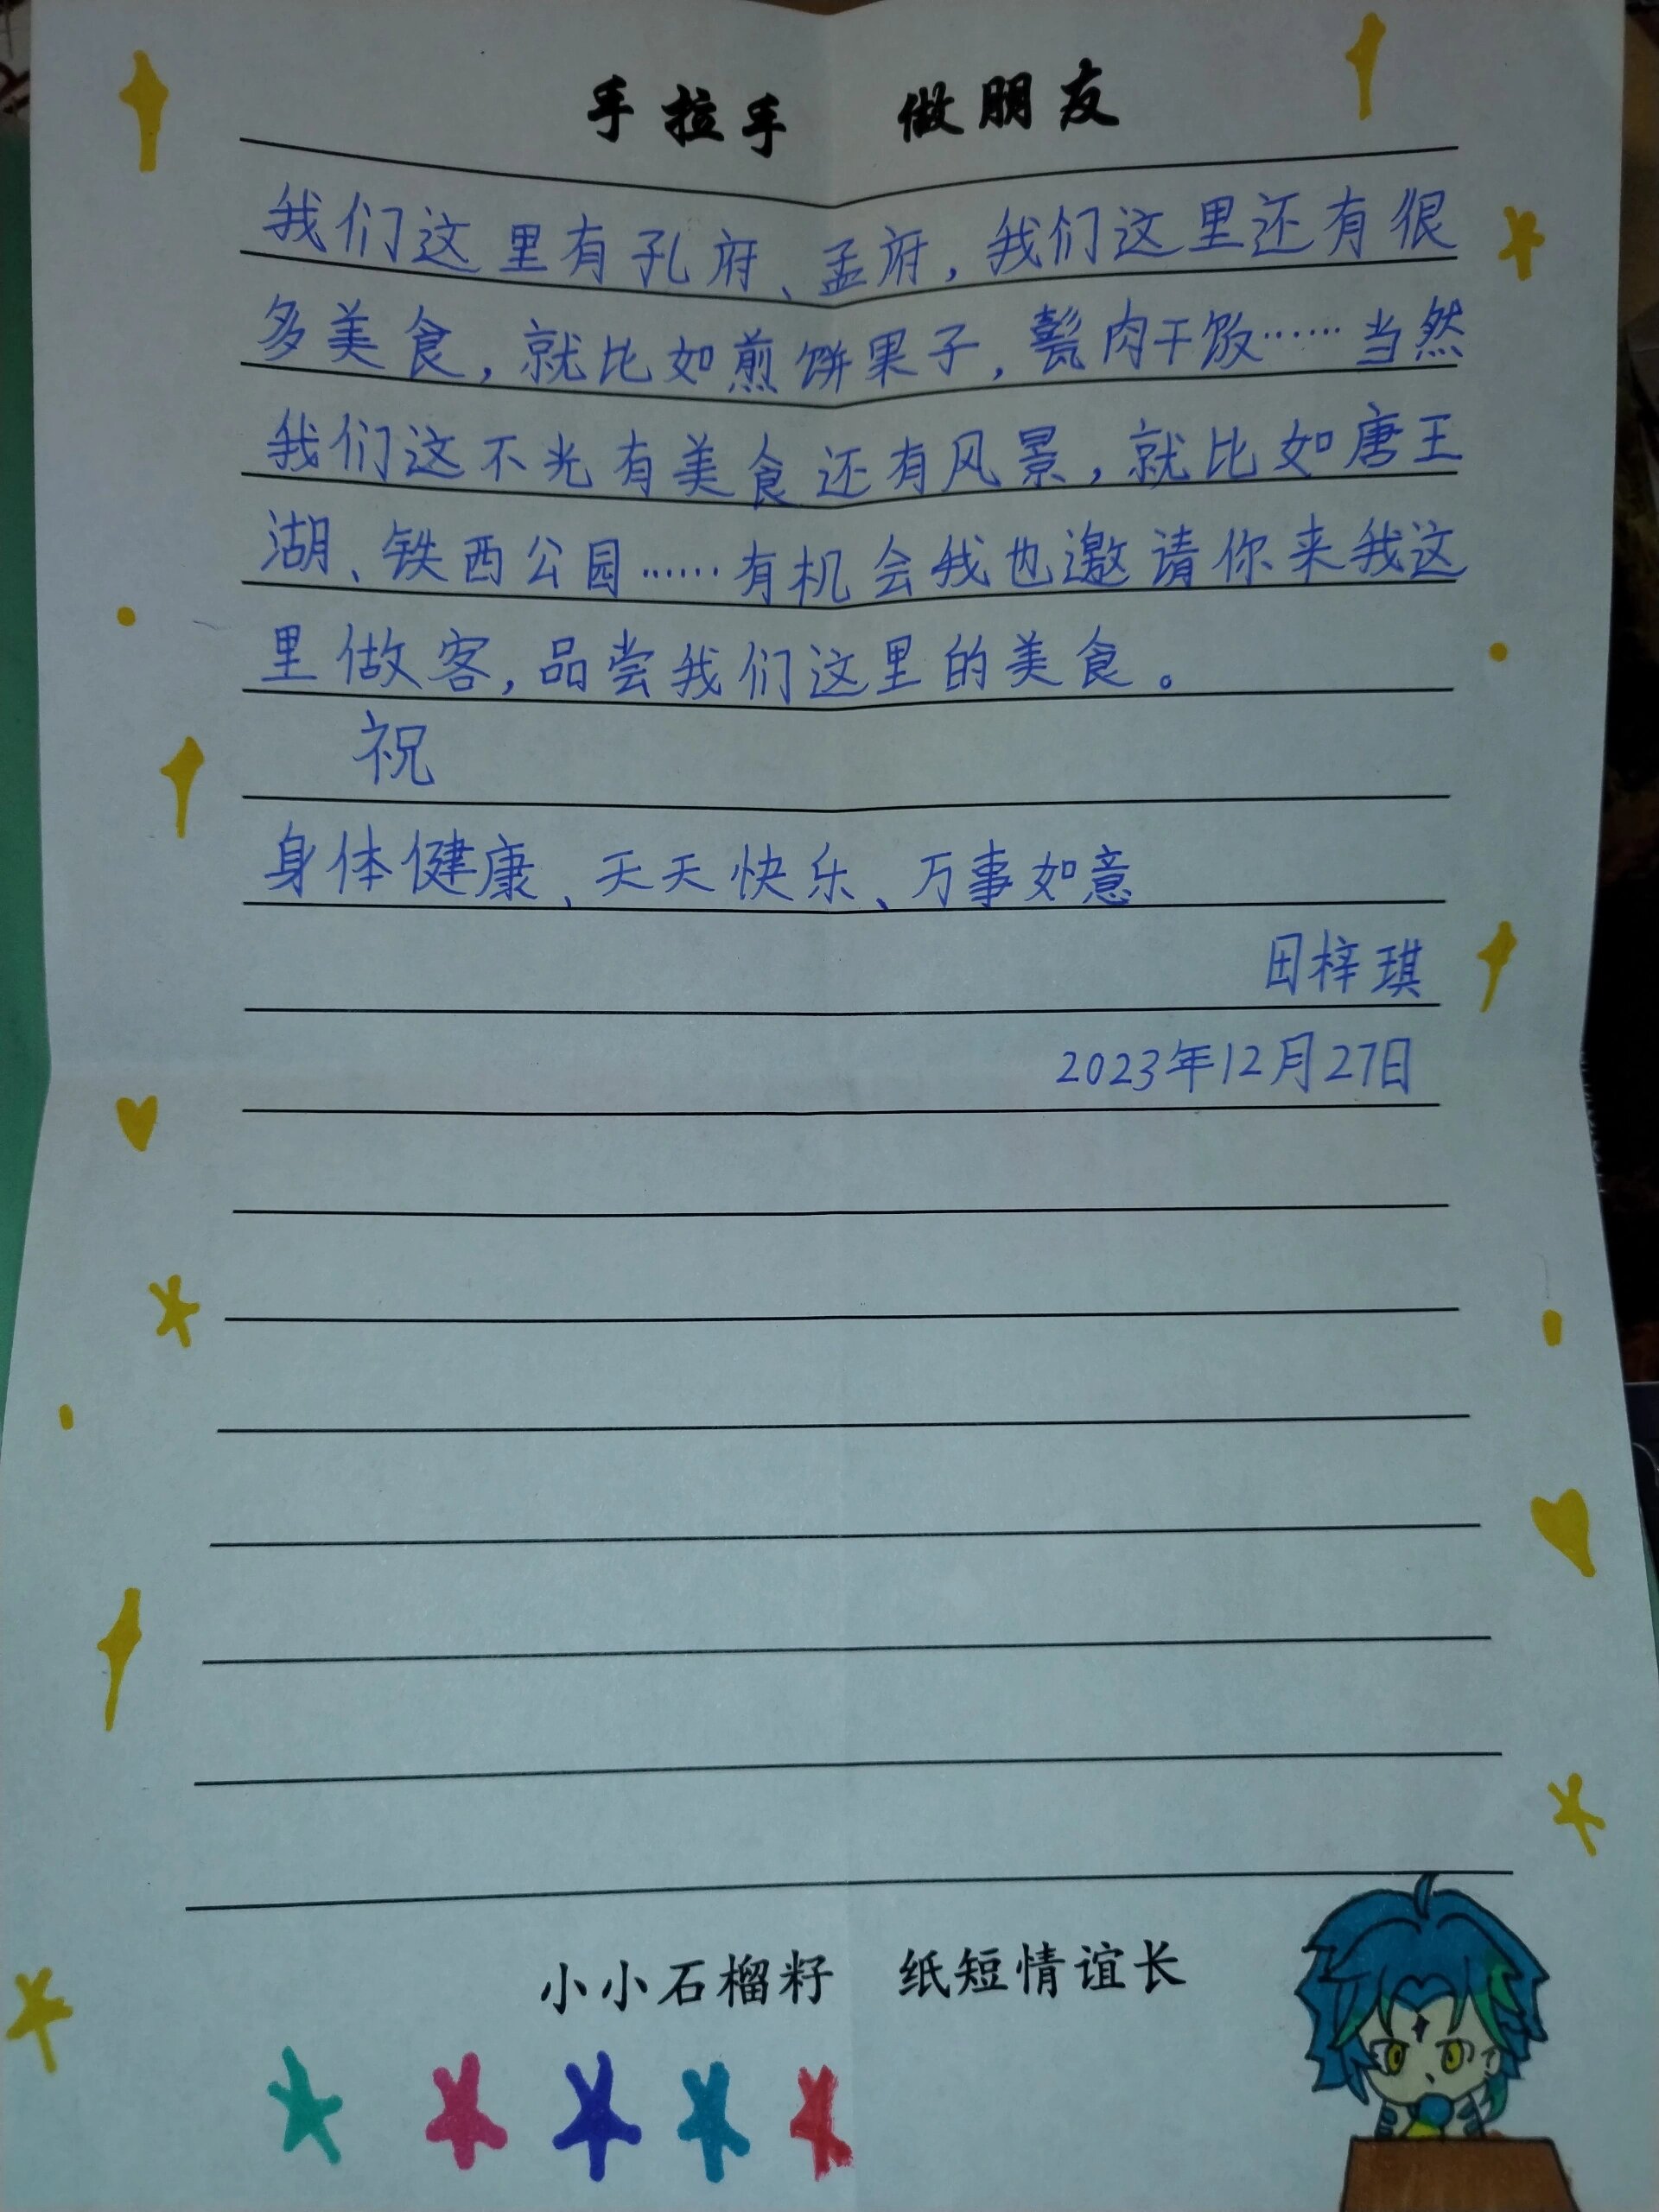 手拉手 做朋友
我们这里有孔府、孟府，我们这里还有很
多美食，就比如煎饼果子，甏肉干饭……当然
我们这不光有美食还有风景，就比如唐王
湖、铁西公园……有机会我也邀请你来我这
里做客，品尝我们这里的美食。
祝
身体健康、天天快乐、万事如意
田梓琪
2023年12月27日
小小石榴籽 纸短情谊长